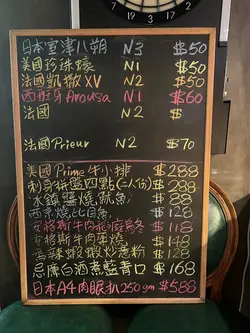 20
3
日本室津八朔 N3 $50
美國珍珠蠔 N1 $50
法國凱撒XV N2 $50
西班牙Arousa N1 $60
法國 N2 $
法國Prieur N2 $70
美國Prime牛小排 $288
刺身拼盤四點(二人份) $288
冰鎮 魷魚 $88
西京燒比目魚 $128
安格斯牛肉 $118
安格斯牛肉 燒 $148
蝦蝦炒煮粉 $128
忌廉白酒煮藍青口 $168
日本A4肉眼扒250gm $588